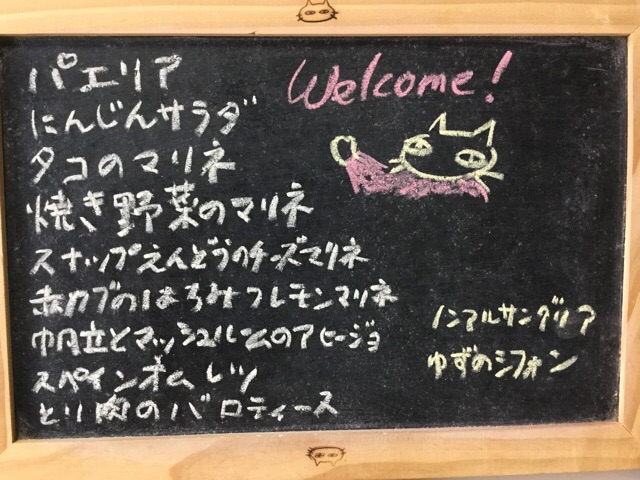 パエリア
にんじんサラダ
タコのマリネ
焼き野菜のマリネ
スナップえんどうのチーズマリネ
赤カブのはちみつレモンマリネ
帆立とマッシュルームのアヒージョ
スペインオムレツ
とり肉のバロティーヌ
Welcome!
ノンアルサングリア
ゆずのシフォン